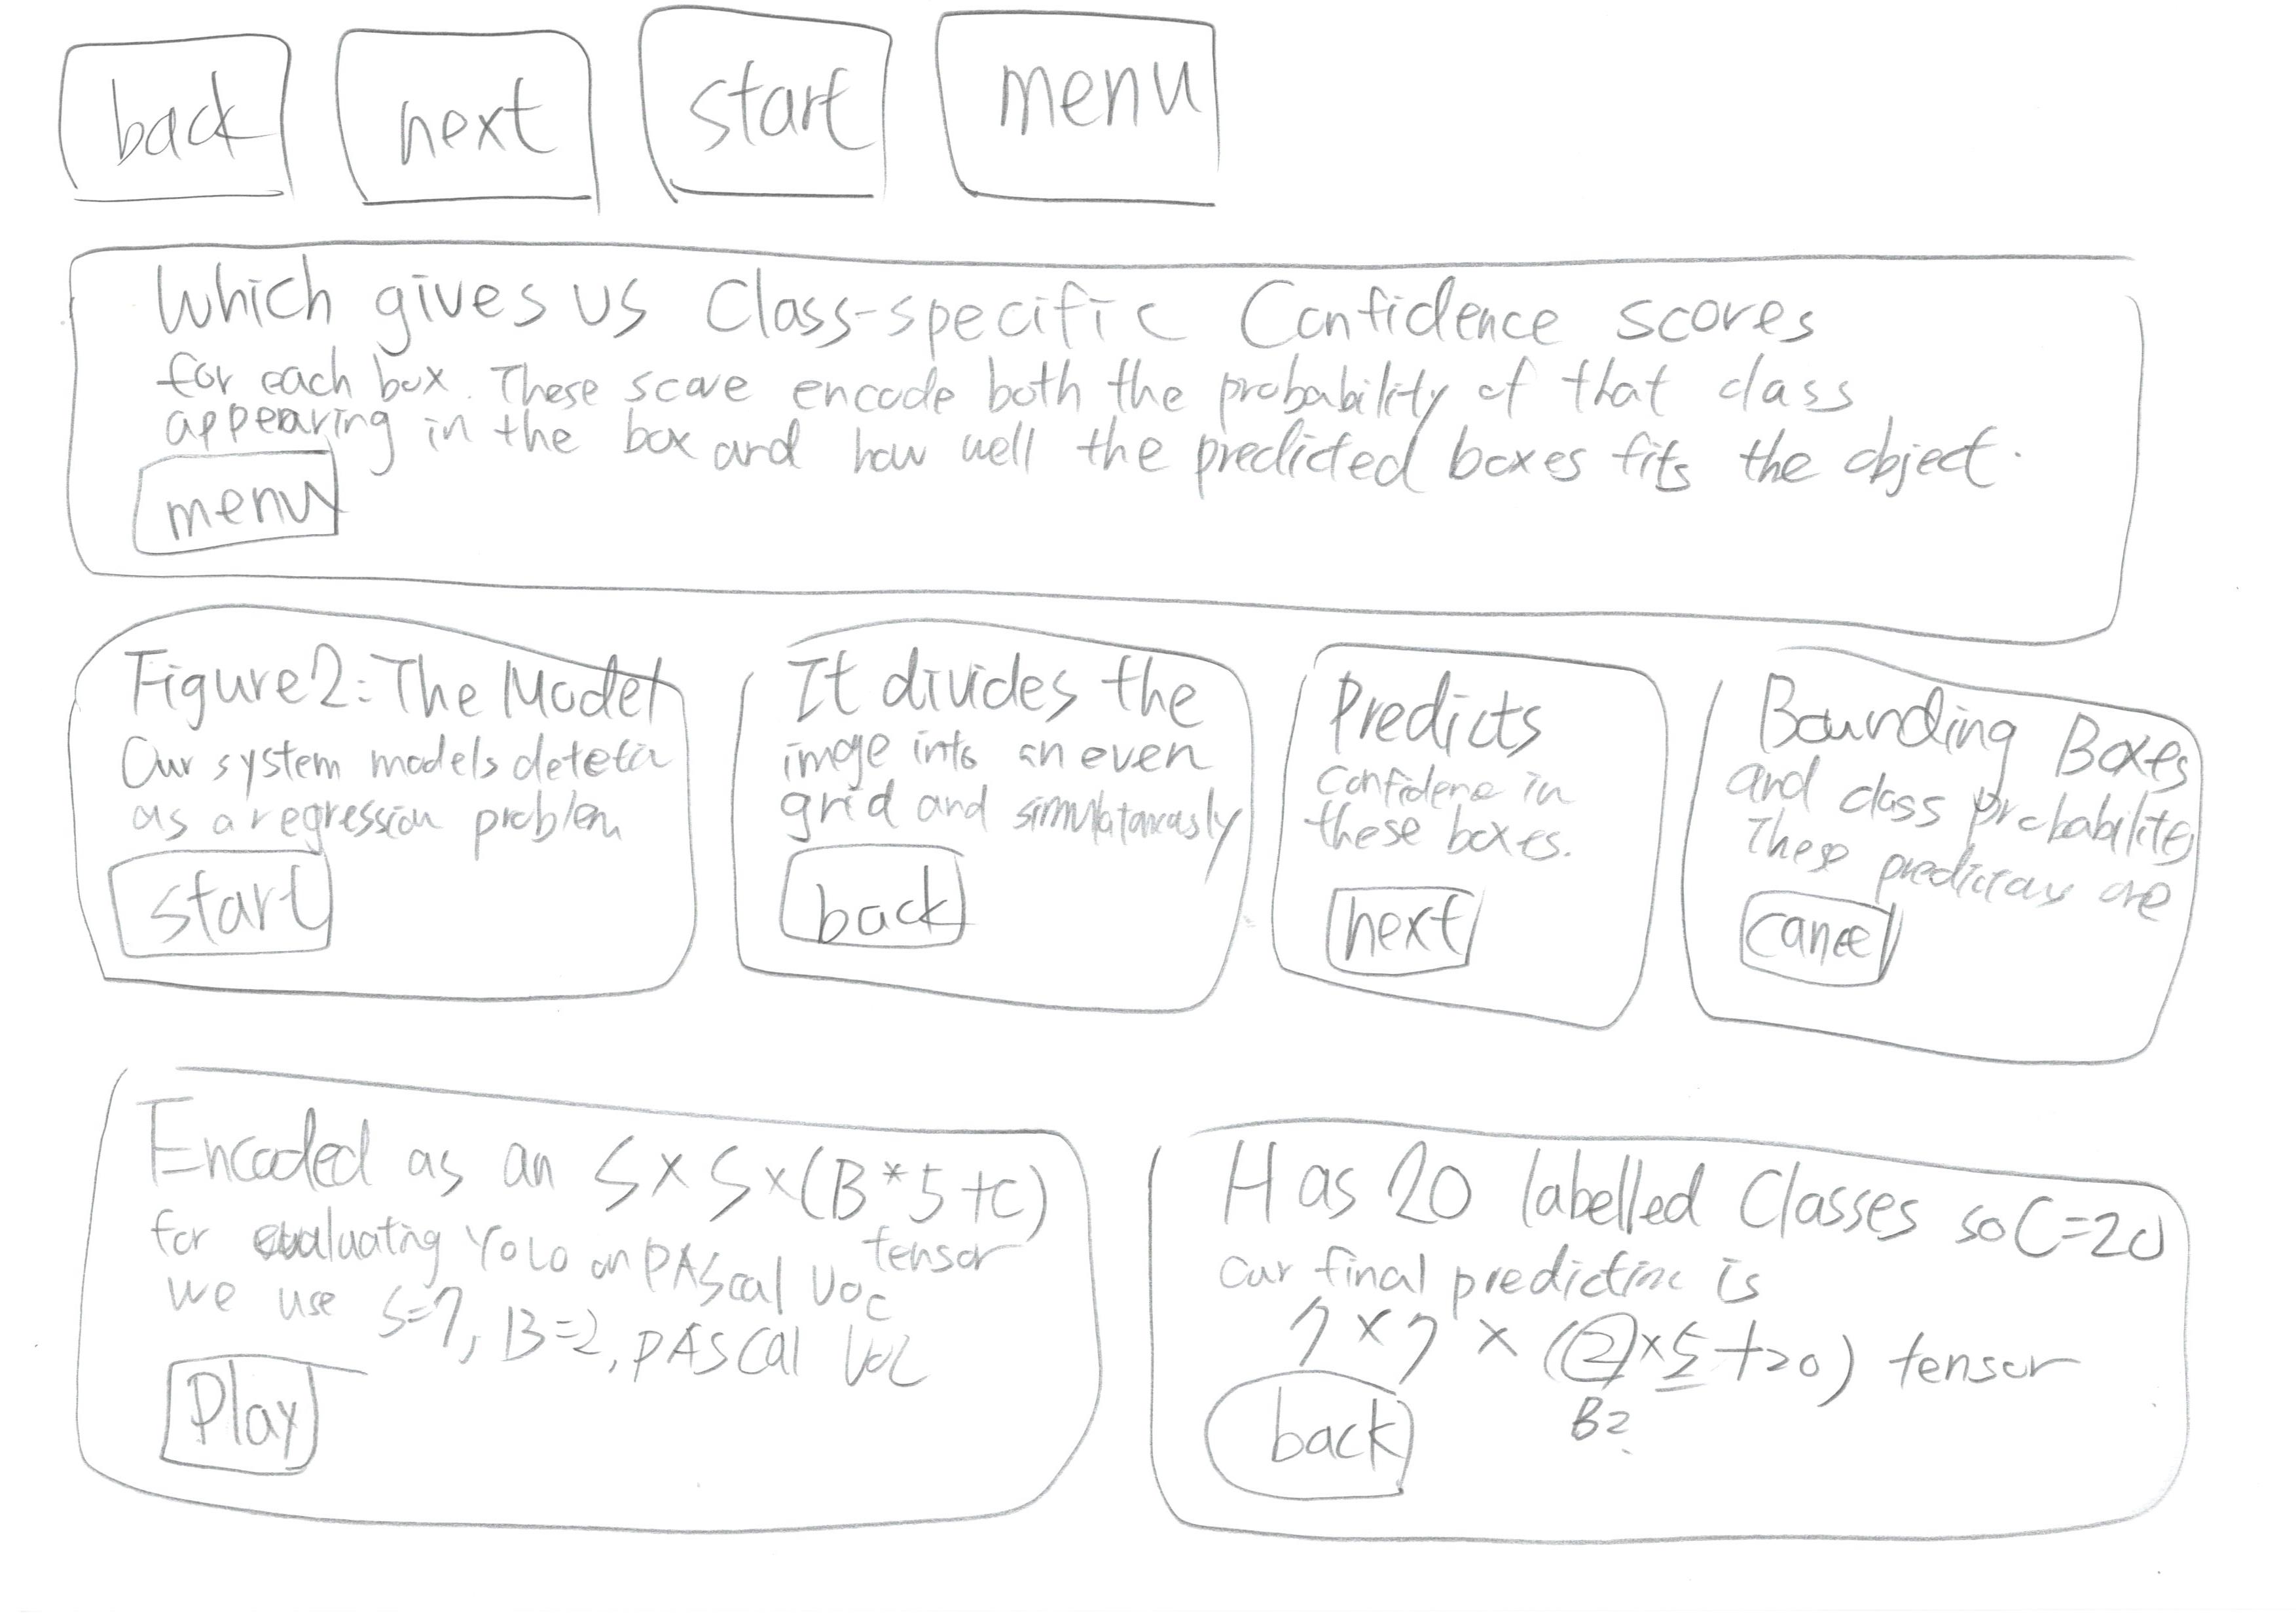 back next start menu
Which gives us Class-specific Confidence scores
for each box. These score encode both the probability of that class
appearing in the box and how well the predicted boxes fits the object.
menu
Figure 2: The Model
Our system models
as a regression problem
start
It divides the
image into an even
grid and
back
Predicts
confidence in
these boxes.
next
Bounding Boxes
and class probability
These are
cancel
Encoded as an S x S x (B * 5 + C)
tensor
for evaluating YOLO on PAScal VOC
we use S=7, B=2, PASCal VOC
Play
Has 20 labelled Classes so C=20
our final is
7 x 7 x (2 x 5 + 20) tensor
B2
back